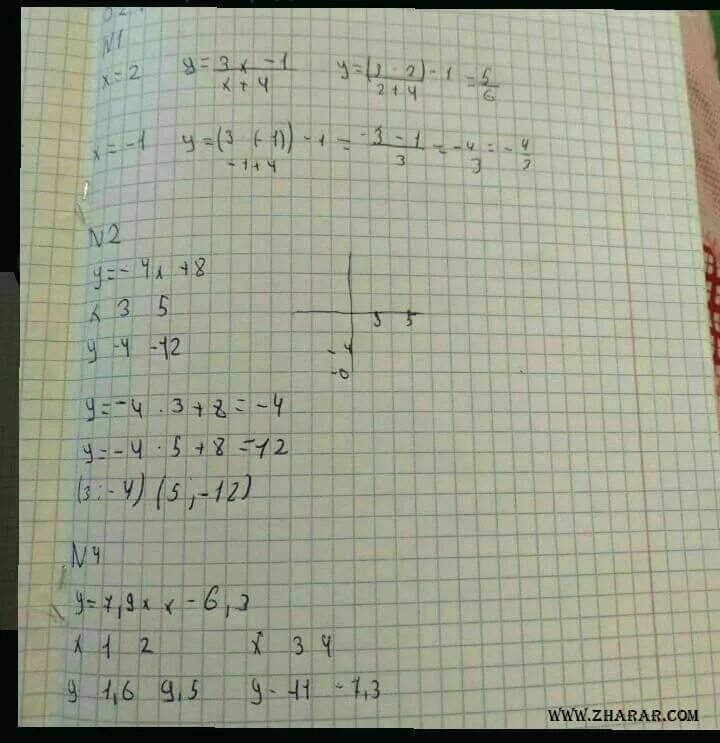 N1
x=2 y=3x-1/x+4 y=(3·2)-1/2+4=5/6
x=-1 y=(3·(-1))-1/-1+4=-3-1/3=-4/3=-4/3
N2
y=-4x+8
x 3 5
y -4 -12
3 5
-4
y=-4·3+8=-4
y=-4·5+8=-12
(3;-4) (5;-12)
N4
y=7,9x x-6,3
x 1 2 x 3 4
y 1,6 9,5 y -11 -7,3
WWW.ZHARAR.COM